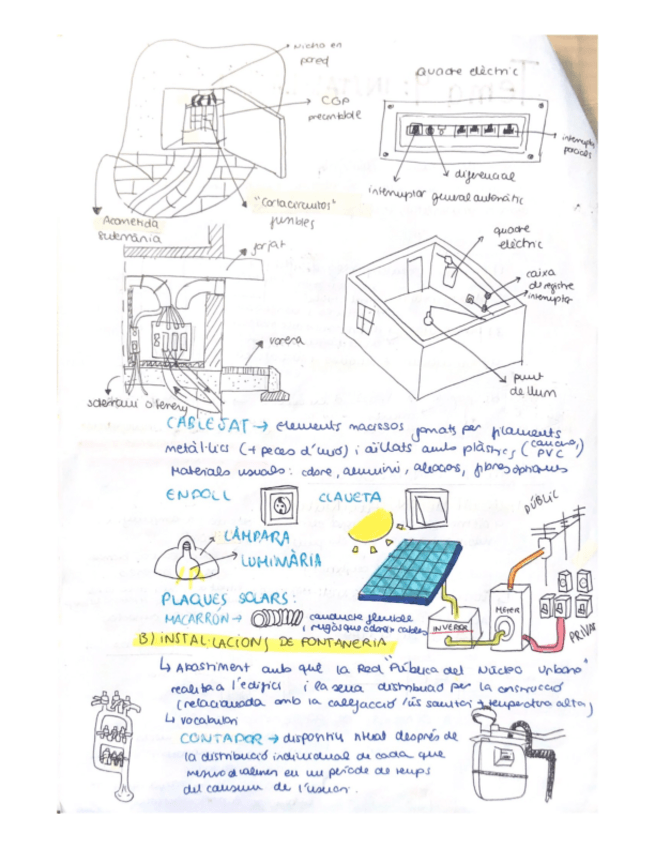 Nicho en
pared
CGP
precintable
"Cortacircuitos"
fusibles
Acometida
subterrània
quadre elèctric
interruptor
parcials
diferencial
interruptor general automàtic
forjat
vorera
soterrani o terreny
quadre
elèctric
caixa
de registre
interruptor
punt
de llum
CABLEJAT → elements macissos formats per filaments
metàl·lics (+ peces d'unió) i aïllats amb plàstics (caucho, PVC)
Materials usuals: coure, alumini,
ENDOLL
CLAVETA
LÀMPARA
LUMINÀRIA
PÚBLIC
PLAQUES SOLARS:
INVERTER
METER
PRIVAT
MACARRÓN → conducte flexible
i rugós que cobreix cables
B) INSTAL·LACIONS DE FONTANERIA
↳ Abastiment amb què la Red "Pública del Núcleo Urbano"
realitza a l'edifici i la seua distribució per la construcció
(relacionada amb la calefacció / ús sanitari + temperatura alta)
↳ Vocabulari
CONTADOR → dispositiu situat després de
la distribució individual de cada que
en un període de temps
del consum de l'usuari.